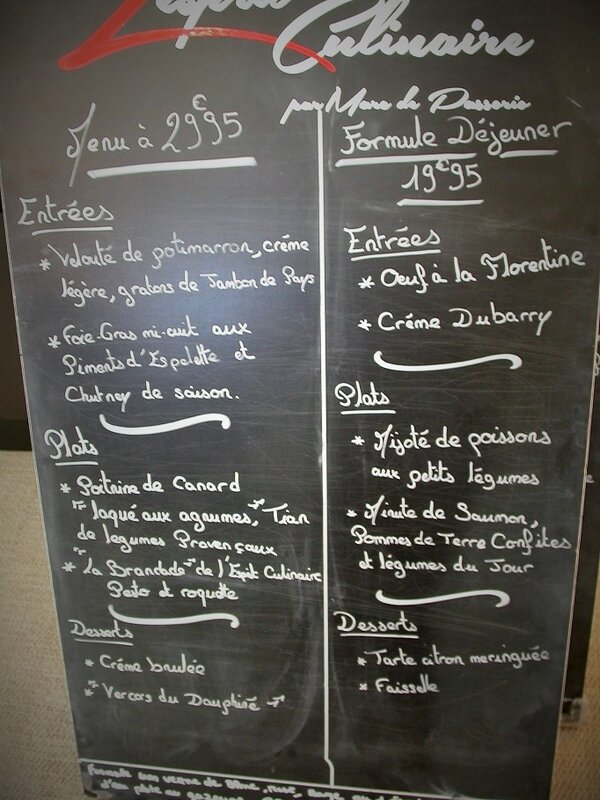 L'esprit
Culinaire
par Marc de Passorio
Menu à 29€95
Entrées
* Velouté de potimarron, crème
légère, gratons de Jambon de Pays
* Foie-Gras mi-cuit aux
Piments d'Espelette et
Chutney de saison.
Plats
* Poitrine de Canard
laqué aux agrumes, Tian
de legumes Provençaux
* "La Brandade" de l'Esprit Culinaire
Pesto et roquette
Desserts
* Créme brulée
* Vercors du Dauphiné
Formule Déjeuner
19€95
Entrées
* Oeuf à la Florentine
* Créme Dubarry
Plats
* Mijoté de poissons
aux petits légumes
* Minute de Saumon,
Pommes de Terre Confites
et légumes du Jour
Desserts
* Tarte citron meringuée
* Faisselle
Formule un verre de rosé, rouge